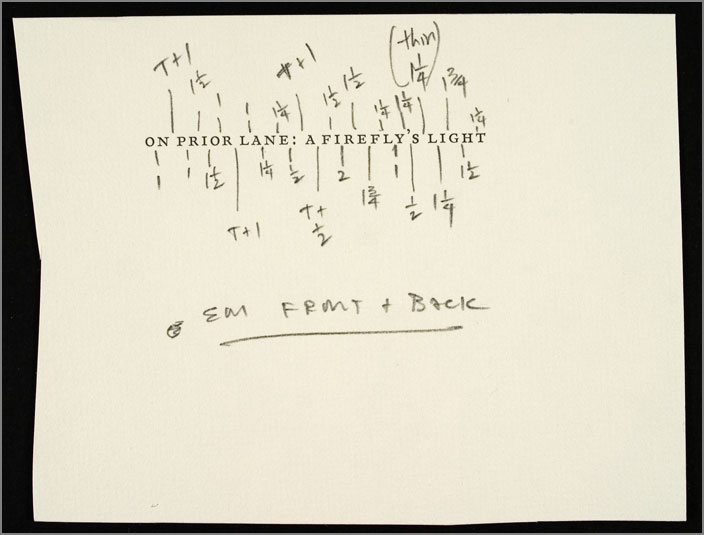 (thin)
T+1 T+1 1¼
1½ 1½ 1½ 1¾
1¼ 1¼ 1¼ 1¼
ON PRIOR LANE: A FIREFLY'S LIGHT
1 1 1½ 1¼ ½ 2 1 1½
1¾ ½ 1¼
T+1 T+½
EM FRONT + BACK